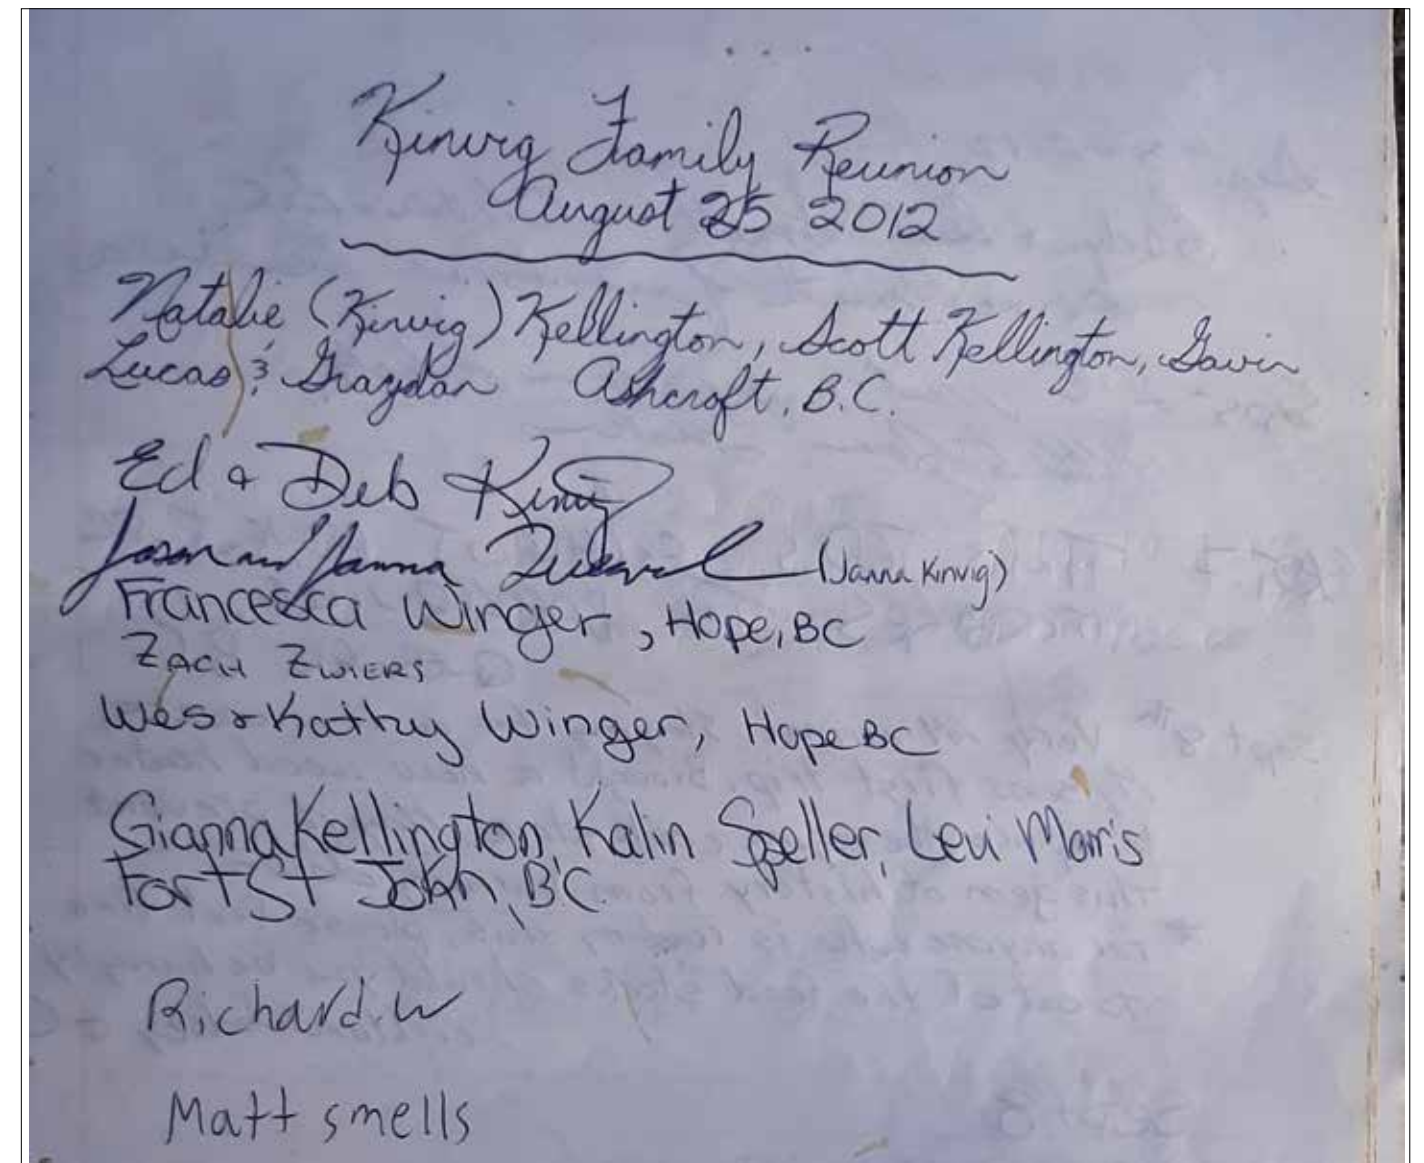 Kinvig Family Reunion
August 25 2012
Natalie (Kinvig) Kellington, Scott Kellington, Gavin
Lucas & Graydon Ashcroft, B.C.
Ed + Deb Kinvig
Jason and Janna (Janna Kinvig)
Francesca Winger, Hope, BC
Zach Zwiers
Wes + Kathy Winger, Hope BC
Gianna Kellington, Kalin Speller, Levi Morris
Fort St John, BC
Richard.W
Matt smells